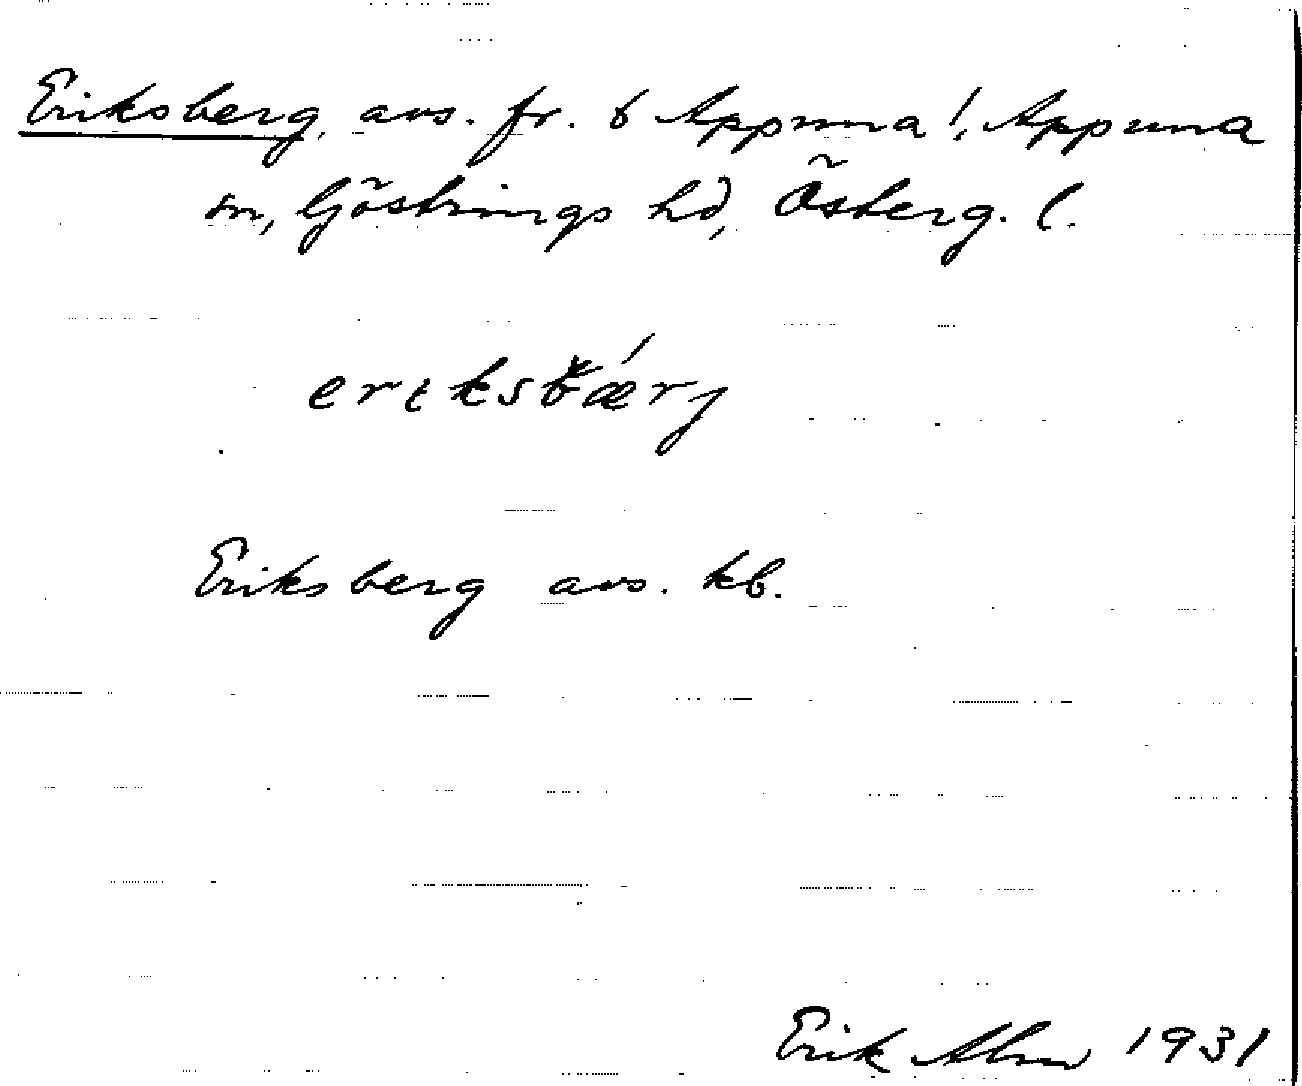 Eriksberg, avs. fr. 6 Appuna !, Appuna
sn, Göstrings hd, Österg. l.
eriksbærj
Eriksberg avs. kb.
Erik Alm 1931